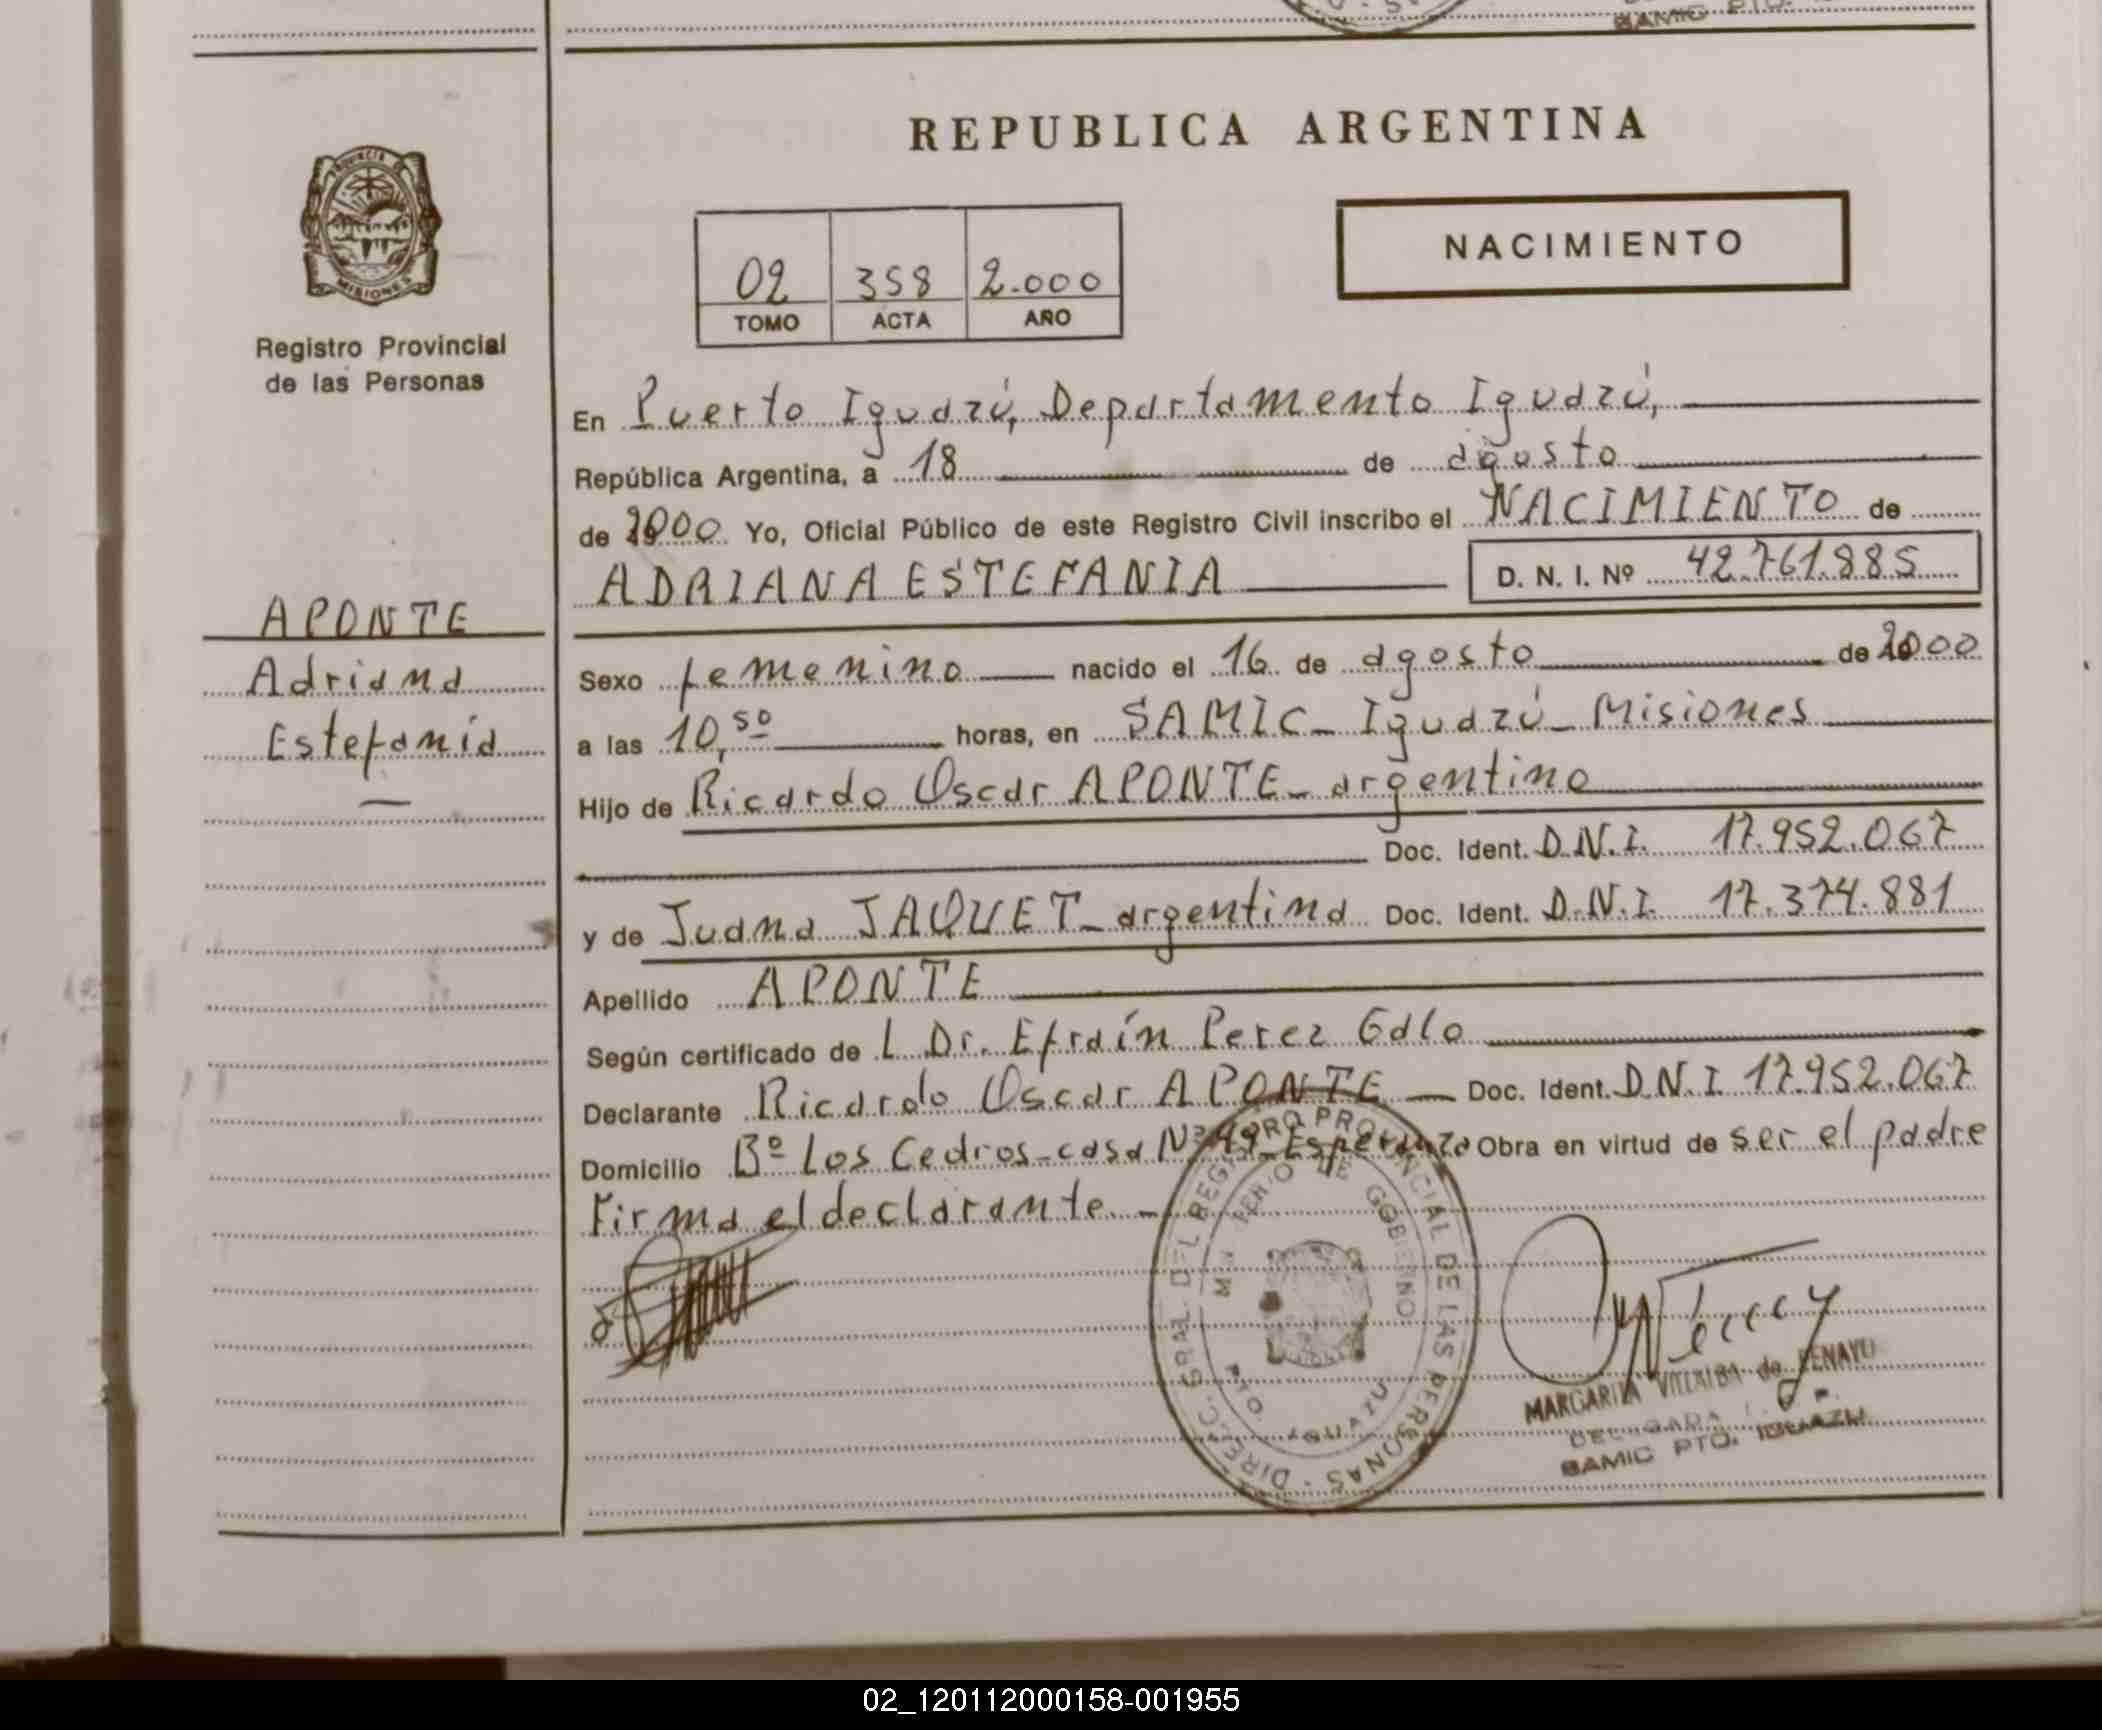 SAMIC PTO.
REPUBLICA ARGENTINA
PROVINCIA DE
MISIONES
Registro Provincial
de las Personas
NACIMIENTO
02 358 2.000
TOMO ACTA AÑO
En Puerto Iguazú, Departamento Iguazú,
República Argentina, a 18 de agosto
de 2000 Yo, Oficial Público de este Registro Civil inscribo el NACIMIENTO de
ADRIANA ESTEFANIA D. N. I. Nº 42.761.885
APONTE
Adriana
Estefania
Sexo femenino nacido el 16 de agosto de 2000
a las 10,50 horas, en SAMIC - Iguazú - Misiones
Hijo de Ricardo Oscar APONTE - argentino
Doc. Ident. D.N.I. 17.952.067
y de Juana JAQUET - argentina Doc. Ident. D.N.I. 17.374.881
Apellido APONTE
Según certificado de L Dr. Efraín Perez Galo
Declarante Ricardo Oscar APONTE — Doc. Ident. D.N.I 17.952.067
Domicilio Bº Los Cedros - casa Nº 49 - Esperanza Obra en virtud de ser el padre
Firma el declarante. -
DIREC. GRAL. DEL REGISTRO PROVINCIAL DE LAS PERSONAS
MINISTERIO DE GOBIERNO
PTO. IGUAZU
MARGARITA VILLALBA de
DELEGADA
SAMIC PTO. IGUAZU
02_120112000158-001955